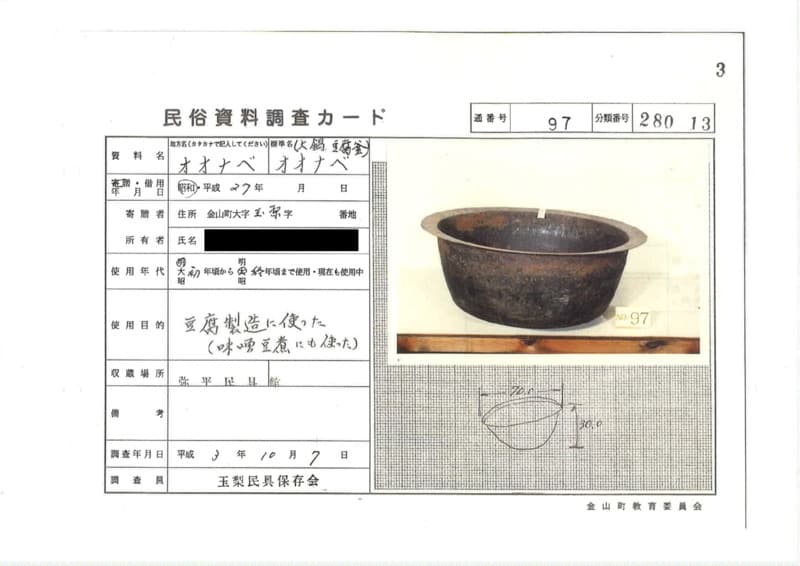 3
民俗資料調査カード
通番号 97 分類番号 280 13
資料名 地方名(カタカナで記入してください) オオナベ 標準名(大鍋、豆腐釜) オオナベ
寄贈・借用年月日 昭和・平成 27年 月 日
寄贈者 住所 金山町大字玉梨字 番地
所有者 氏名
使用年代 明大昭 初年頃から 明大昭 終年頃まで使用・現在も使用中
使用目的 豆腐製造に使った
(味噌豆煮にも使った)
収蔵場所 弥平民具館
備考
調査年月日 平成 3年 10月 7日
調査員 玉梨民具保存会
NO. 97
70.0
30.0
金山町教育委員会